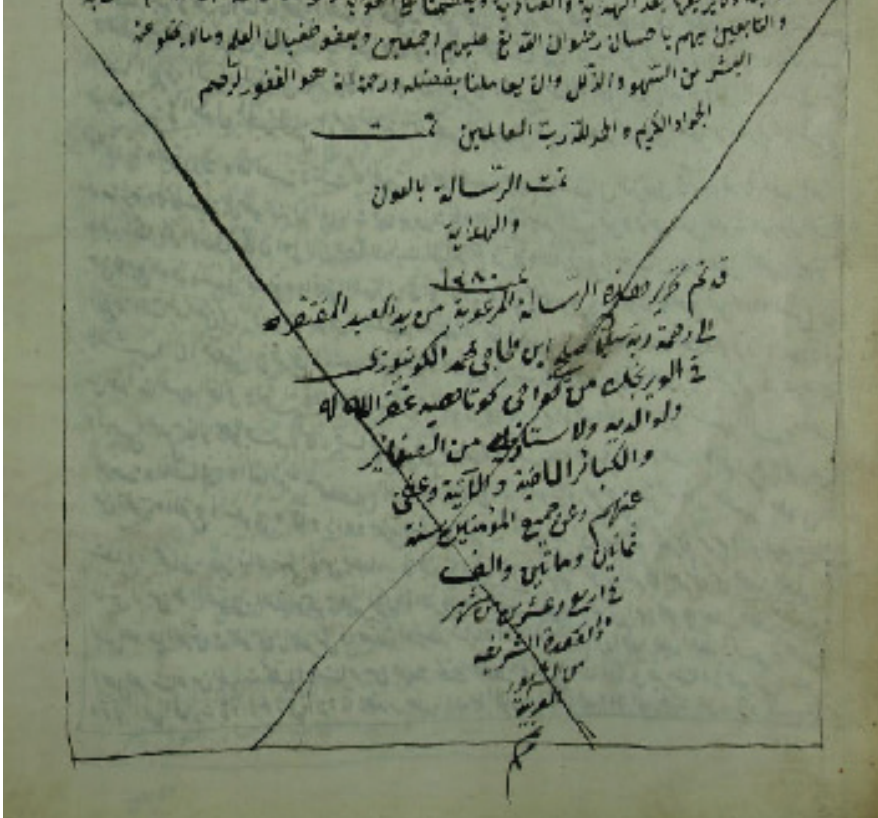 والتابعين بهم باحسان رضوان الله تع عليهم اجمعين وبعفو
البشر من السهو والذلل وان يعاملنا بفضله ورحمته انه هو الغفور الرحيم
الجواد الكريم والحمد لله رب العالمين تمت
تمت الرسالة بالعون
والهداية
سنة ١٢٨٠
قد تم تحرير هذه الرسالة المرغوبة من يد العبد المفتقر
الى رحمة ربه ابن الحاجى محمد
فى من كوتاهيه غفر الله له
ولوالديه ولاستاذيه من الصغاير
والكبائر الماضية والآتية وعفى
عنهم وعن جميع المؤمنين سنة
ثمانين ومأتين والف
فى اربع وعشرين من شهر
ذو القعدة الشريفه
من الشهور
العربية
م